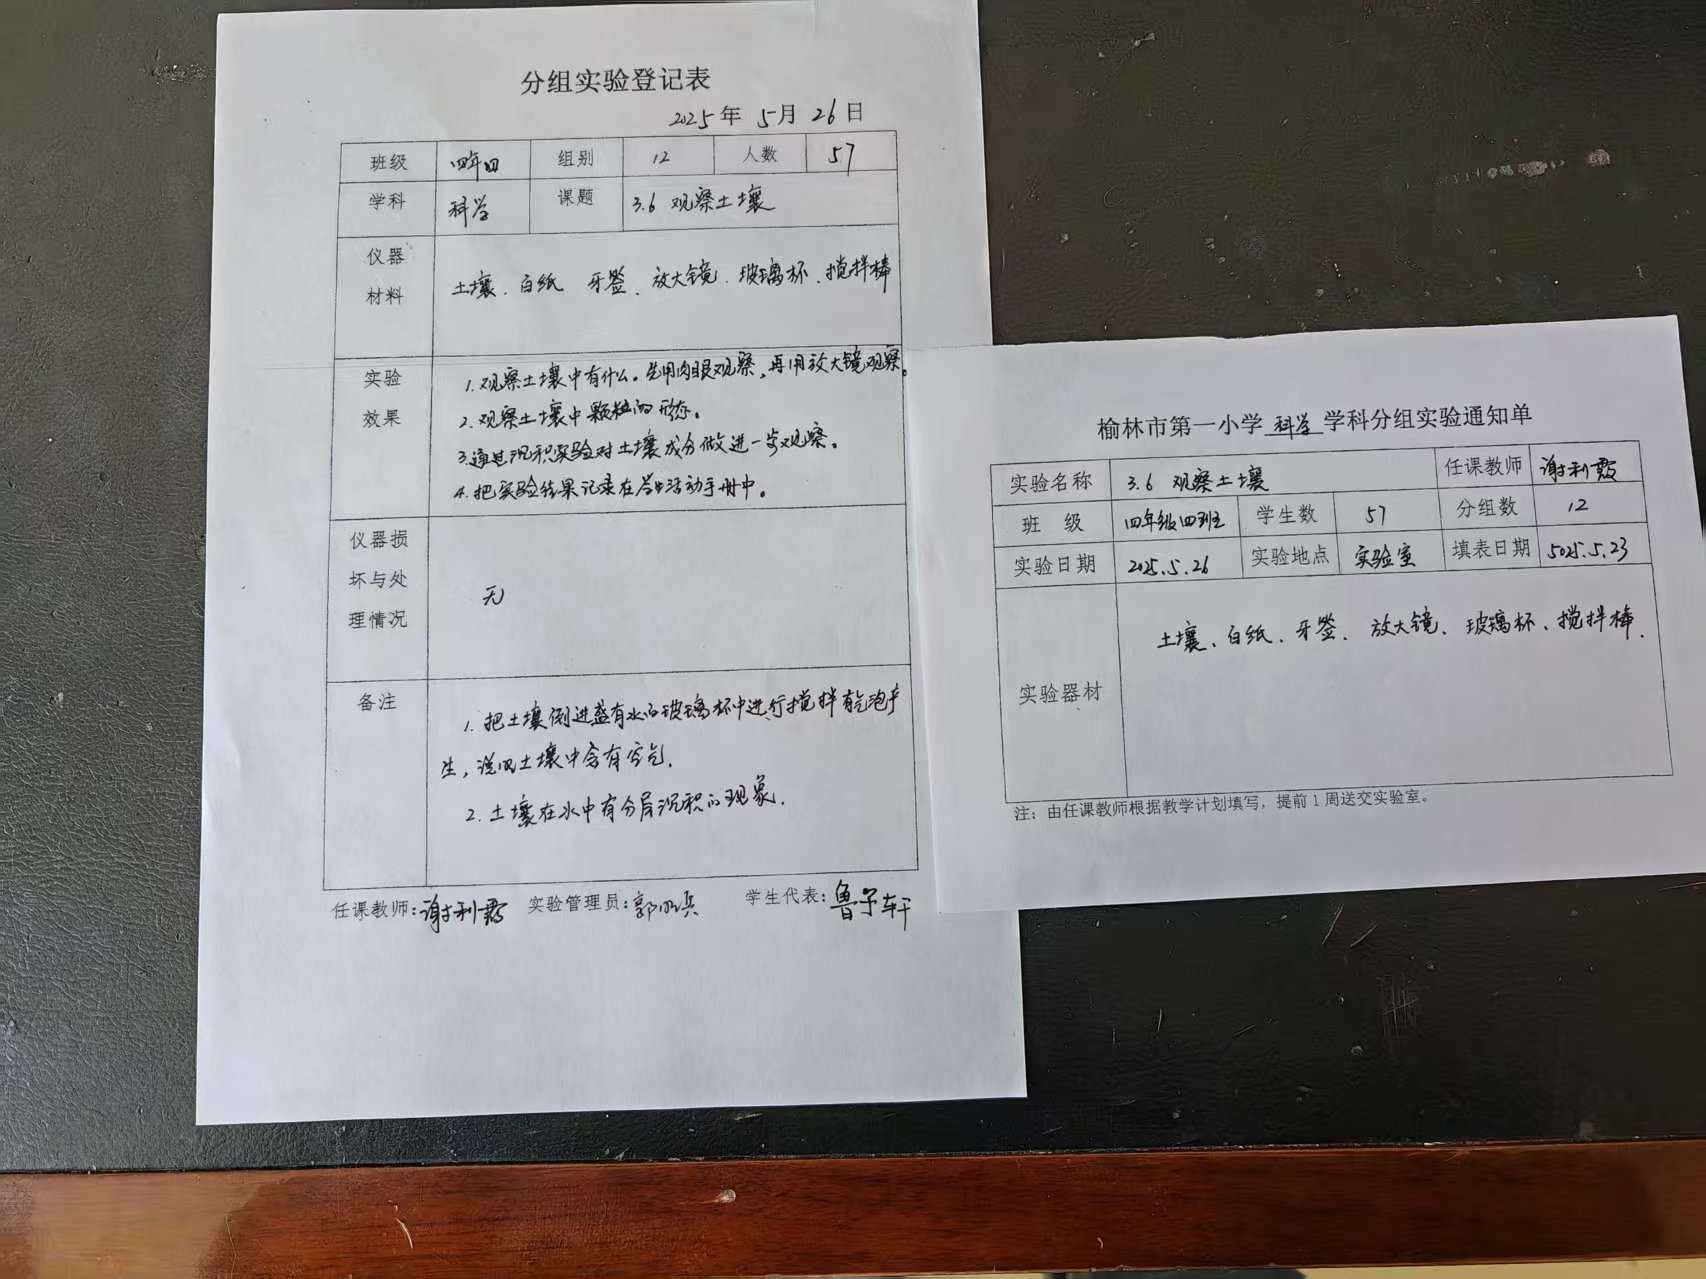 分组实验登记表
2025年 5月 26日
班级 四年四 组别 12 人数 57
学科 科学 课题 3.6 观察土壤
仪器
材料
土壤、白纸 牙签、放大镜、玻璃杯、搅拌棒
实验
效果
1.观察土壤中有什么。先用肉眼观察,再用放大镜观察。
2.观察土壤中颗粒的形态。
3.通过沉积实验对土壤成分做进一步观察。
4.把实验结果记录在学生活动手册中。
仪器损
坏与处
理情况
无
备注
1.把土壤倒进盛有水的玻璃杯中进行搅拌有气泡产
生,说明土壤中含有空气.
2.土壤在水中有分层沉积的现象.
任课教师:谢利 实验管理员:郭 兵 学生代表:鲁子轩
榆林市第一小学 科学 学科分组实验通知单
实验名称 3.6 观察土壤 任课教师 谢利
班 级 四年级四班 学生数 57 分组数 12
实验日期 2025.5.26 实验地点 实验室 填表日期 5025.5.23
实验器材
土壤、白纸、牙签、放大镜、玻璃杯、搅拌棒.
注:由任课教师根据教学计划填写,提前1周送交实验室。